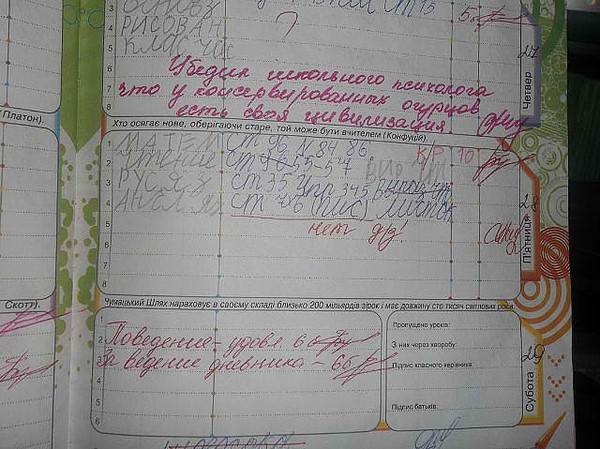 РИСОВАН
КЛАС ЧАС
Убедил школьного психолога
что у консервированных огурцов
есть своя цивилизация
Четвер
27
Платон).
Хто осягає нове, оберігаючи старе, той може бути вчителем (Конфуцій).
МАТЕМ СТ 96 N 84 86 К.Р. 10
ЧТЕНИЕ СТ
РУС ЯЗ СТ 353 УПР 345
АНГЛ ЯЗ СТ 4х6 (ПИС) ЛИСТОК
нет д/з!
П'ятниця
28
Скотт).
Чумацький Шлях нараховує в своєму складі близько 200 мільярдів зірок і має довжину сто тисяч світлових років.
Поведение - удовл. 6
За ведение дневника - 6б
Пропущено уроків:
З них через хворобу:
Підпис класного керівника:
Підпис батьків:
Субота
29